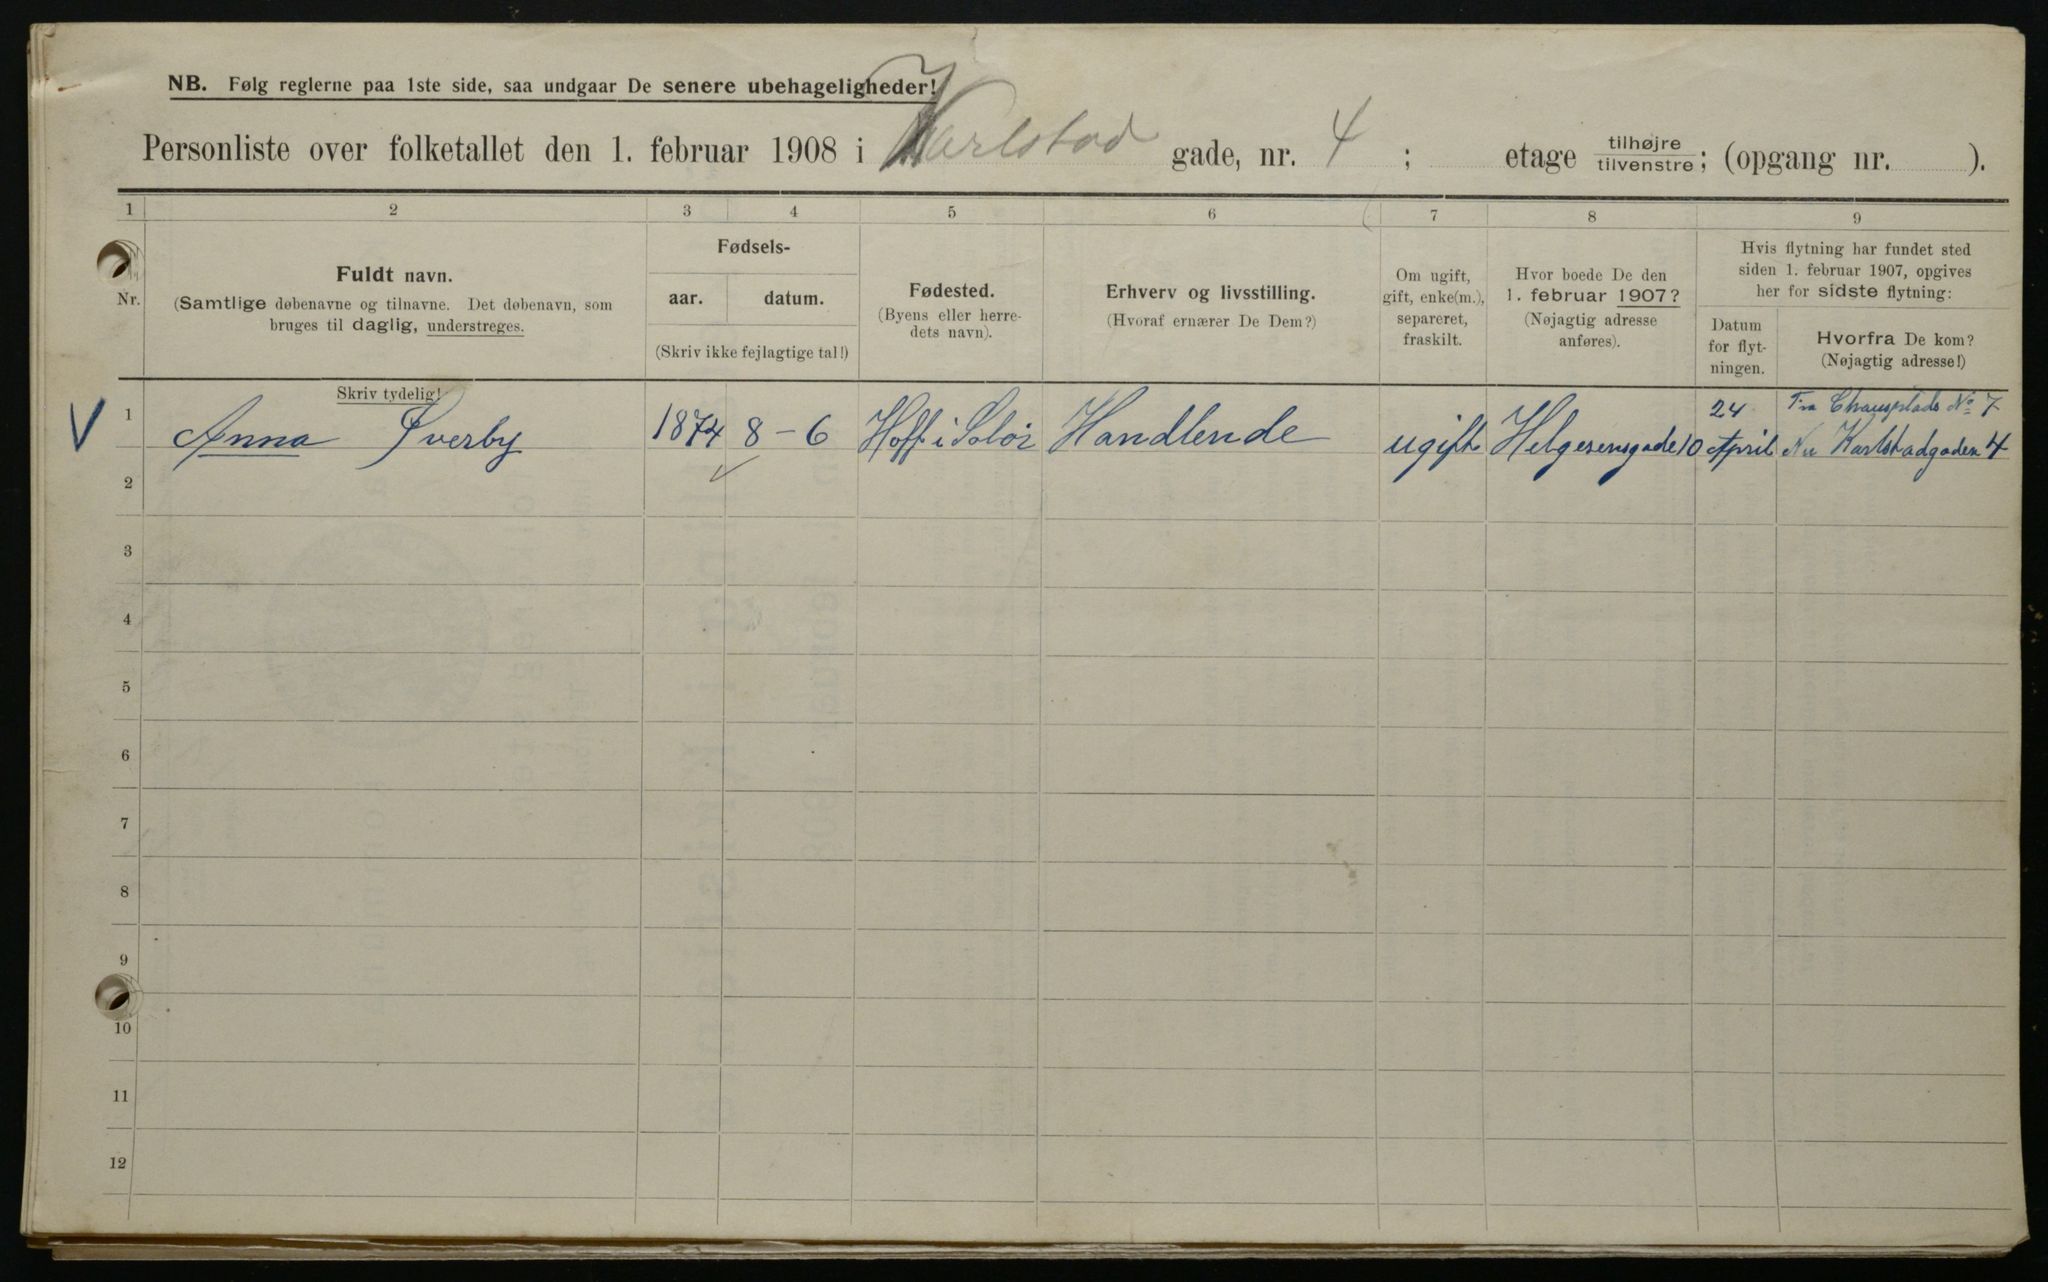 NB. Følg reglerne paa 1ste side, saa undgaar De senere ubehageligheder!
Personliste over folketallet den 1. februar 1908 i Karlstad gade, nr. 4 ; etage tilhøjre/tilvenstre; (opgang nr. ).
1 2 3 4 5 6 7 8 9
Nr.
Fuldt navn.
(Samtlige døbenavne og tilnavne. Det døbenavn, som
bruges til daglig, understreges.
Skriv tydelig!
Fødsels-
aar. datum.
(Skriv ikke fejlagtige tal!)
Fødested.
(Byens eller herre-
dets navn).
Erhverv og livsstilling.
(Hvoraf ernærer De Dem?)
Om ugift,
gift, enke(m.),
separeret,
fraskilt.
Hvor boede De den
1. februar 1907?
(Nøjagtig adresse
anføres).
Hvis flytning har fundet sted
siden 1. februar 1907, opgives
her for sidste flytning:
Datum
for flyt-
ningen.
Hvorfra De kom?
(Nøjagtig adresse!)
V 1 Anna Sverby 1874 8-6 Hoff i Solør Handlende ugift Helgesensgade 10 24 April Fra No 7
Nu Karlstadgaden 4
2
3
4
5
6
7
8
9
10
11
12